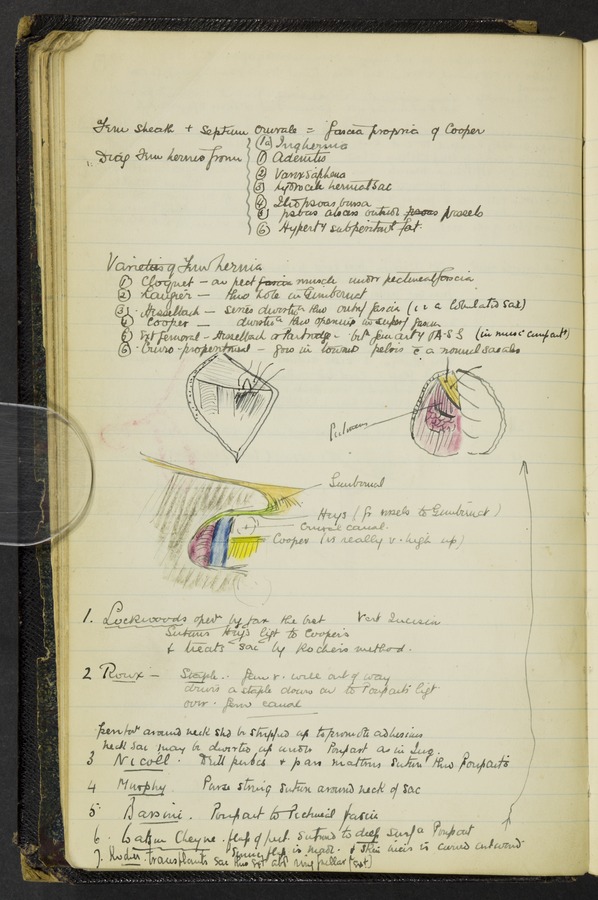 Fem sheath + Septum Crurale = fascia propria of Cooper
Diag Fem hernia from
(1a) Ing hernia
(1) Adenitis
(2) Varix Saphena
(3) Hydrocele hernial Sac
(4) Iliopsoas bursa
(5) psoas abscess outside psoas vessels
(6) Hypert subperitoneal fat.
Varieties of Fem hernia
(1) Cloquet — in pect fascia muscle under pectineal fascia
(2) Laugier — thro hole in Gimbernat
(3) Hesselbach — series thro fascia (i.e. a lobulated Sac)
(4) Cooper — thro opening in superf fascia
(5) Ext Femoral — Hesselbach or Partridge — bet fem art & A.S.S (in musc compart)
(6) Cruro-properitoneal — goes in towards pelvis c a normal sac also
Gimbernat
Heys (fr vessels to Gimbernat)
Crural canal.
Cooper (is really v. high up)
1. Lockwoods oper by far the best Vert Incision
Sutures Heys ligt to Coopers
& treats sac by Kochers method.
2 Roux — Staple. Fem v. well out of way
drives a staple down on to Pouparts ligt
over fem canal
around neck shd be stripped up to promote adhesions
neck sac may be up under Poupart as in Ing.
3 Nicoll. Drill pubes & pass mattress suture thro Pouparts
4 Murphy. Purse string suture around neck of sac
5 Bassini. Poupart to Pectineal fascia
6. Watson Cheyne. flap of pect. sutured to deep surf of Poupart
flap is made. & skin incis is curved outward
7. Kocher. transplants sac thro ext abd ring pillar